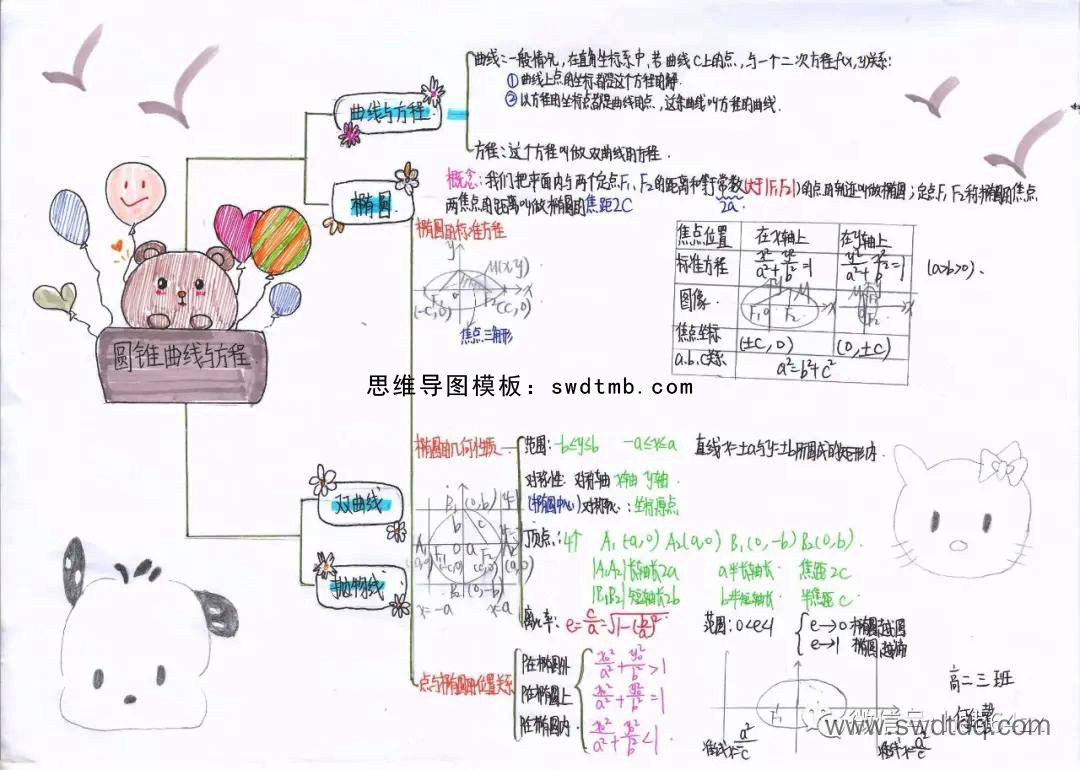 圆锥曲线与方程
曲线与方程
曲线:一般情况,在直角坐标系中,若曲线C上的点,与一个二次方程f(x,y)关系:
①曲线上点的坐标都是这个方程的解.
②以方程的坐标点都是曲线的点,这条曲线叫方程的曲线.
方程:这个方程叫做双曲线的方程.
椭圆
概念:我们把平面内与两个定点F₁、F₂的距离和等于常数(大于|F₁F₂|)的点的轨迹叫做椭圆;定点F₁F₂称椭圆的焦点
2a
两焦点的距离叫做椭圆的焦距2C
椭圆的标准方程
y
M(x,y)
F₁ 0 F₂ x
(-C,0) (C,0)
焦点三角形
焦点位置 在x轴上 在y轴上
标准方程 x²/a²+y²/b²=1 y²/a²+x²/b²=1 (a>b>0).
图像. F₁ 0 F₂ M x
焦点坐标 (±C,0) (0,±C)
a.b.c关系 a²=b²+c²
思维导图模板：swdtmb.com
椭圆的几何性质
范围: -b≤y≤b -a≤x≤a 直线x=±a与y=±b所围成的矩形内.
对称性: 对称轴 x轴 y轴
(椭圆中心) 对称心: 坐标原点
顶点: 4个 A₁(-a,0) A₂(a,0) B₁(0,-b) B₂(0,b).
|A₁A₂|长轴长2a a半长轴长. 焦距2C
|B₁B₂|短轴长2b b半短轴长. 半焦距C.
离心率: e=c/a=√1-(b/a)² 范围:0<e<1 e→0 椭圆越圆
e→1 椭圆越扁
B₁ (0,b)
b c
A₁ 0 a A₂
F₁ F₂
(-c,0) (c,0) (a,0)
B₂(0,-b)
x=-a x=a
双曲线
抛物线
点与椭圆的位置关系
P在椭圆外 x₀²/a²+y₀²/b²>1
P在椭圆上 x₀²/a²+y₀²/b²=1
P在椭圆内. x₀²/a²+y₀²/b²<1
F₁
准线x=-a²/c 准线x=a²/c
高二三班
www.swdtdq.com